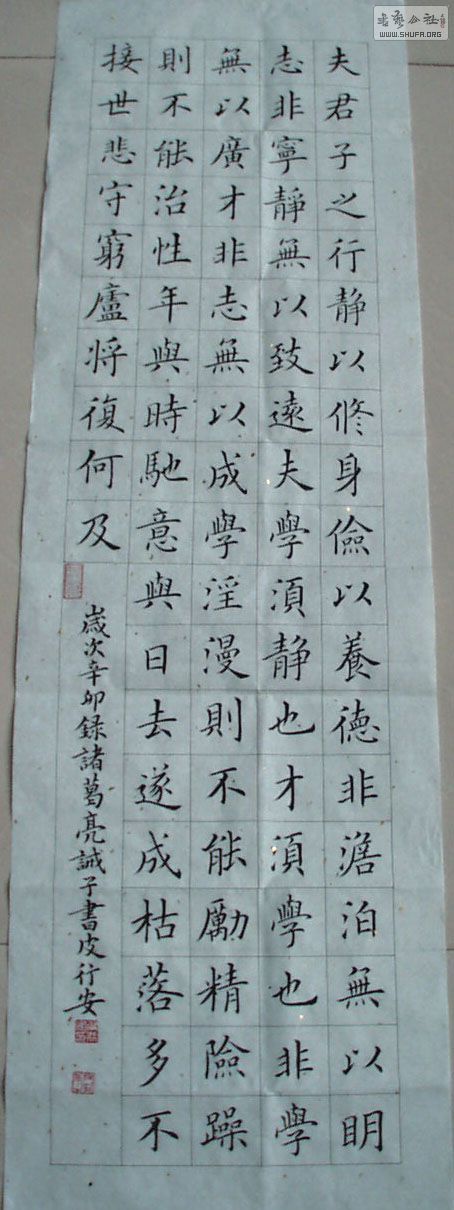 夫君子之行静以修身儉以養德非澹泊無以明
志非寧靜無以致遠夫學須静也才須學也非學
無以廣才非志無以成學淫漫則不能勵精險躁
則不能治性年與時馳意與日去遂成枯落多不
接世悲守窮廬將復何及
歲次辛卯錄諸葛亮誡子書皮行安
书艺公社
WWW.SHUFA.ORG